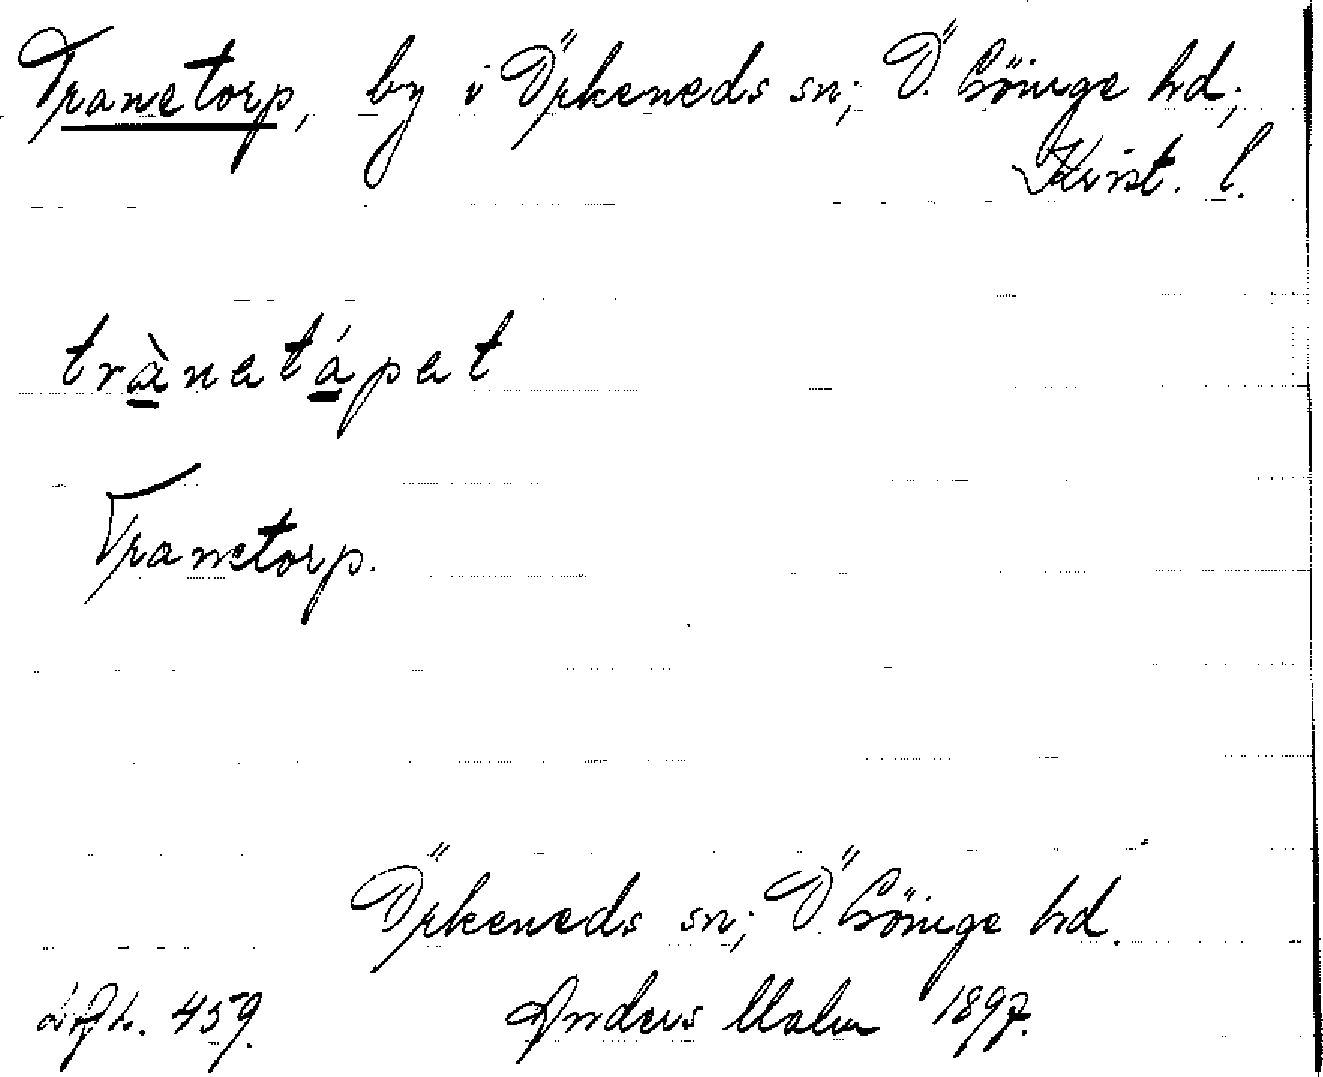 Tranetorp, by i Örkeneds sn; Ö. Göinge hd;
Krist. l.
trànatápet
Tranetorp.
Örkeneds sn; Ö. Göinge hd.
459. Anders Malm 1897.